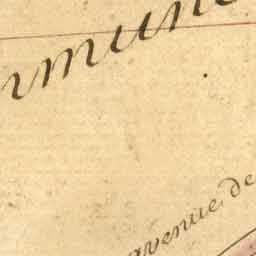 mmune
avenue de